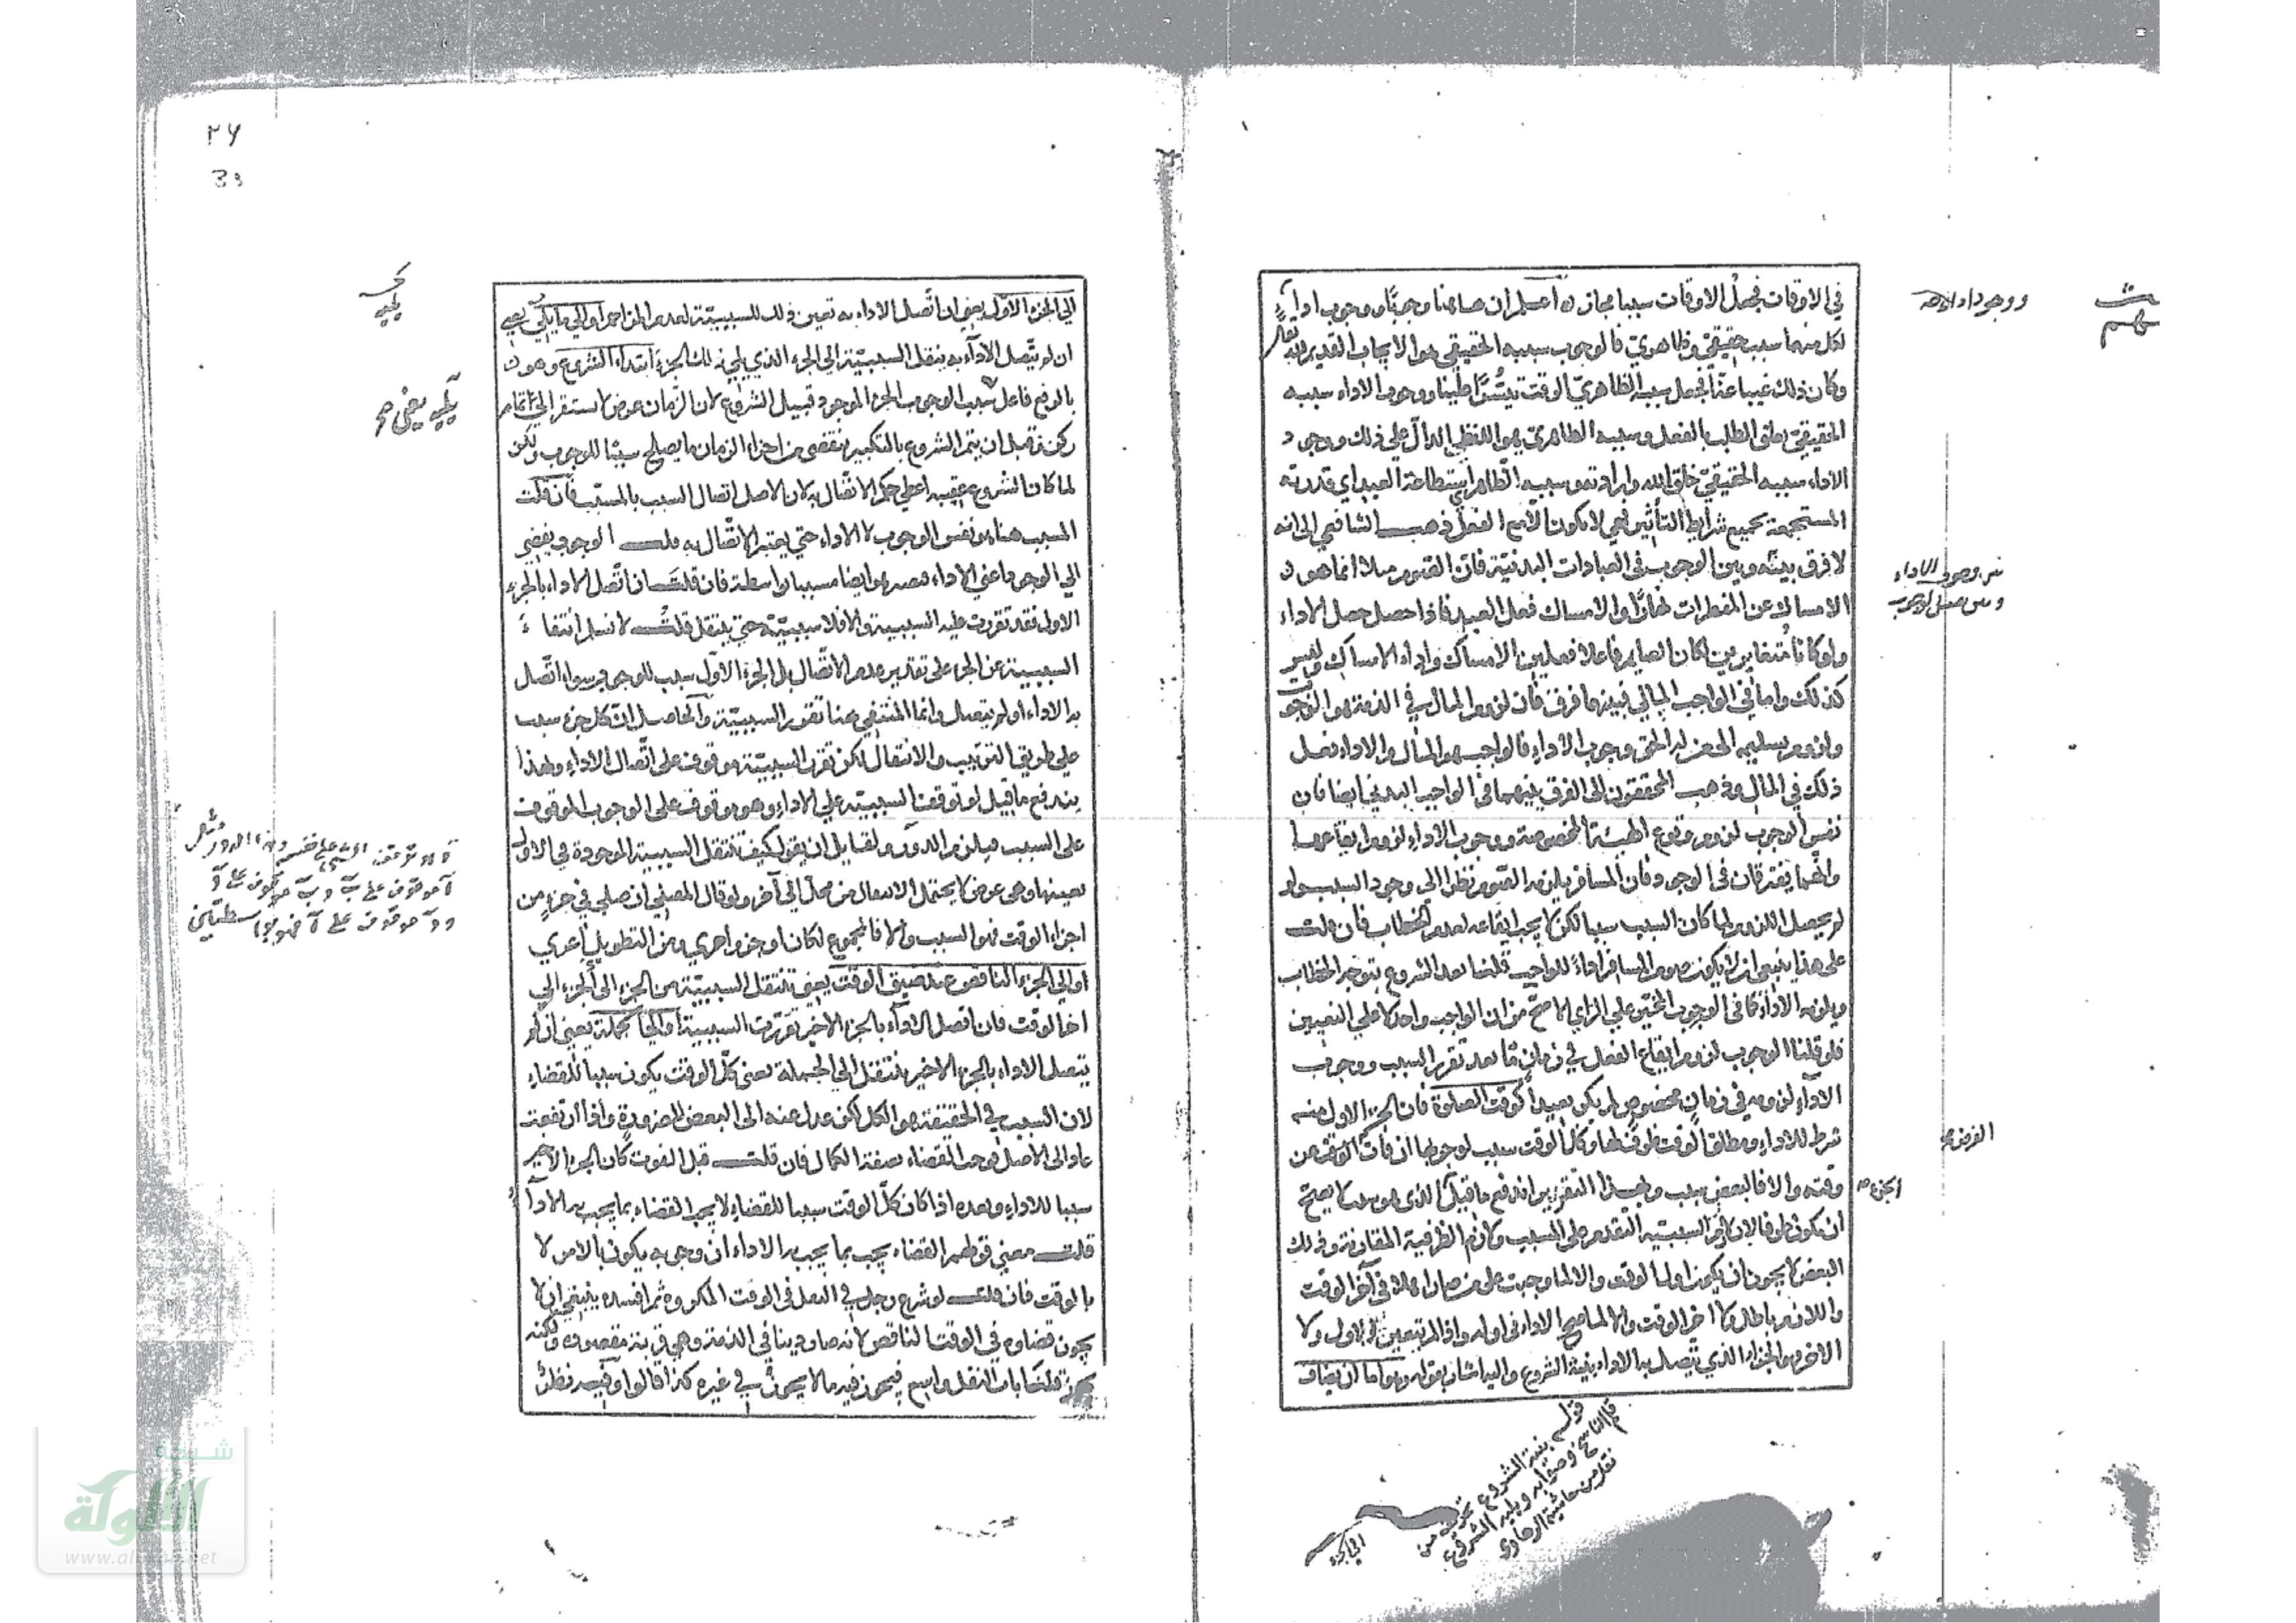 في الاوقات فجعل الاوقات سببا مجازه اعلم ان ههنا وجوبا ووجوب اداء
لكل منهما سبب حقيقي وظاهري فالوجوب سببه الحقيقي هو الايجاب القديم لله تعالى
وكان ذلك غيبا عنا فجعل سببه الظاهري الوقت تيسيرا علينا ووجوب الاداء سببه
الحقيقي تعلق الطلب بالفعل وسببه الظاهري هو اللفظ الدال على ذلك ووجود
الاداء سببه الحقيقي خلق الله وارادته وسببه الظاهر استطاعة العبد اي قدرته
المستجمعة بجميع شرايط التأثير فهي لا يكون الا مع الفعل ذهب الشافعي الى انه
لا فرق بينه وبين الوجوب في العبادات البدنية فان الصوم مثلا انما هو
الامساك عن المفطرات نهارا والامساك فعل العبد فاذا حصل حصل الاداء
ولو كانا متغايرين لكان الصايم فاعلا فعلين الامساك واداء الامساك وليس
كذلك واما في الواجب المالي فبينهما فرق فان لزوم المال في الذمة هو الوجوب
ولزوم تسليمه الى من له الحق وجوب الاداء فالواجب هو المال والاداء فعل
ذلك في المال وذهب المحققون الى الفرق بينهما في الواجب البدني ايضا فان
نفس الوجوب لزوم وقوع الهيئة المخصوصة ووجوب الاداء لزوم ايقاعها
وانهما يفترقان في الوجود فان المسافر يلزمه الصوم نظرا الى وجود السبب ولو
لم يحصل اللزوم لما كان السبب سببا لكن لا يجب ايقاعه لعدم الخطاب فان قلت
على هذا ينبغي ان لا يكون صوم المسافر اداء للواجب قلنا بعد الشروع يتوجه الخطاب
ويلزمه الاداء كما في الوجوب المخير على الراي الاصح من ان الواجب واحد لا على التعيين
فلو قلنا الوجوب لزوم ايقاع الفعل في زمان ما بعد تقرر السبب ووجوب
الاداء لزومه في زمان مخصوص لم يكن بعيدا كوقت الصلوة فان الجزء الاول منه
شرط للاداء ومطلق الوقت ظرف لها وكل الوقت سبب لوجوبها ان فات الفرض عن
وقته والا فالبعض سبب وبهذا التقرير اندفع ما قيل الذي هو سبب لا يصح
ان يكون ظرفا لان لازم السببية التقدم على المسبب ولازم الظرفية المقارنة وذلك
البعض لا يجوز ان يكون اول الوقت والا لما وجبت على من صار اهلا في آخر الوقت
واللازم باطل ولا اخر الوقت والا لما صح الاداء في اوله واذا لم يتعين الاول ولا
الاخر فهو الجزء الذي يتصل به الاداء بنية الشروع واليه اشار بقوله وهو اما ان يضاف
ووجود اداء
الجزء
قوله بنية الشروع تحريف من
قلم الناسخ وصوابه ويليه الشروع
نقل من حاشية الرهاوي
٢٧
33
يليه
يليه يعني
الى الجزء الاول يعني ان اتصل الاداء به تعين ذلك للسببية لعدم المزاحم او الى ما يلي يعني
ان لم يتصل الاداء به ينقل السببية الى الجزء الذي يلي ذلك الجزء ابتداء الشروع وهو
بالرفع فاعل سبب الوجوب الجزء الموجود قبيل الشروع لان الزمان عرض لا استقرار
ركن فقبل ان يتم الشروع بالتكبير ينقضي من اجزاء الزمان ما يصلح سببا للوجوب ولكن
لما كان الشروع عقيبه اعطي حكم الاتصال به لان الاصل اتصال السبب بالمسبب فان قلت
المسبب هنا هو نفس الوجوب لا الاداء حتى يعتبر الاتصال به قلت الوجوب يفضي
الى الوجود اعني الاداء فصار هو ايضا مسببا بواسطة فان قلت ان اتصل الاداء بالجزء
الاول فقد تقررت عليه السببية والا فلا سببية حتى ينتقل قلت لا نسلم انتفاء
السببية عن الجزء على تقدير عدم الاتصال بل الجزء الاول سبب للوجوب سواء اتصل
به الاداء او لم يتصل وانما المنتفي هنا تقرر السببية والحاصل ان كل جزء سبب
على طريق الترتيب والانتقال لكن تقرر السببية موقوف على اتصال الاداء وبهذا
يندفع ما قيل لو توقفت السببية على الاداء وهو موقوف على الوجوب الموقوف
على السبب فيلزم الدور ولقايل ان يقول كيف تنتقل السببية الموجودة في الاول
بعينها وهي عرض لا يحتمل الانتقال من محل الى آخر ولو قال المصلي ان صلى في جزء من
اجزاء الوقت فهو السبب والا فالمجموع لكان اوجز واحرى ومن التطويل اعرى
او الى الجزء الناقص عند ضيق الوقت يعني تنتقل السببية من الجزء الى الجزء الى
اخر الوقت فان اتصل الاداء بالجزء الاخير تقررت السببية او الى جملته يعني ان لم
يتصل الاداء بالجزء الاخير تنتقل الى الجملة يعني كل الوقت يكون سببا للقضاء
لان السبب في الحقيقة هو الكل لكن عدل عنه الى البعض للضرورة واذا ارتفعت
عاد الى الاصل فوجب القضاء بصفة الكمال فان قلت قبل الفوت كان الجزء الاخير
سببا للاداء وبعده اذا كان كل الوقت سببا للقضاء لا يجب القضاء بما يجب به الاداء
قلت معنى قولهم القضاء يجب بما يجب به الاداء ان وجوبه يكون بالامر لا
بالوقت فان قلت لو شرع رجل في النفل في الوقت المكروه ثم افسده ينبغي ان لا
يجوز قضاؤه في الوقت الناقص لانه صار دينا في الذمة وهي قربة مقصودة ولكنه
يجوز قلت باب النفل واسع فيجوز فيه ما لا يجوز في غيره كذا قالوا وفيه نظر
شبكة
الألوكة
www.alukah.net